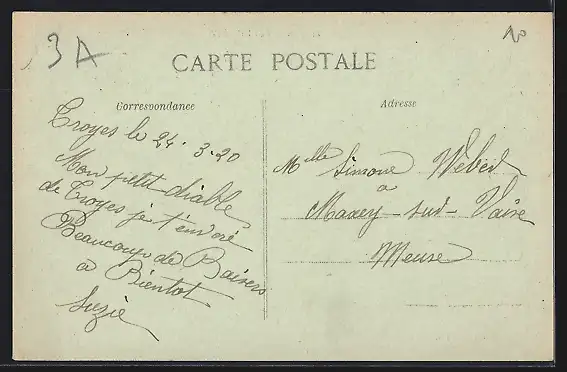 3A
CARTE POSTALE
Correspondance
Adresse
Troyes le 24.3.20
Mon petit diable
de Troyes je t'envoie
Beaucoup de Baisers
a Bientot
Suzie
Mlle Simone Weber
a
Maxey-sur-Vaise
Meuse